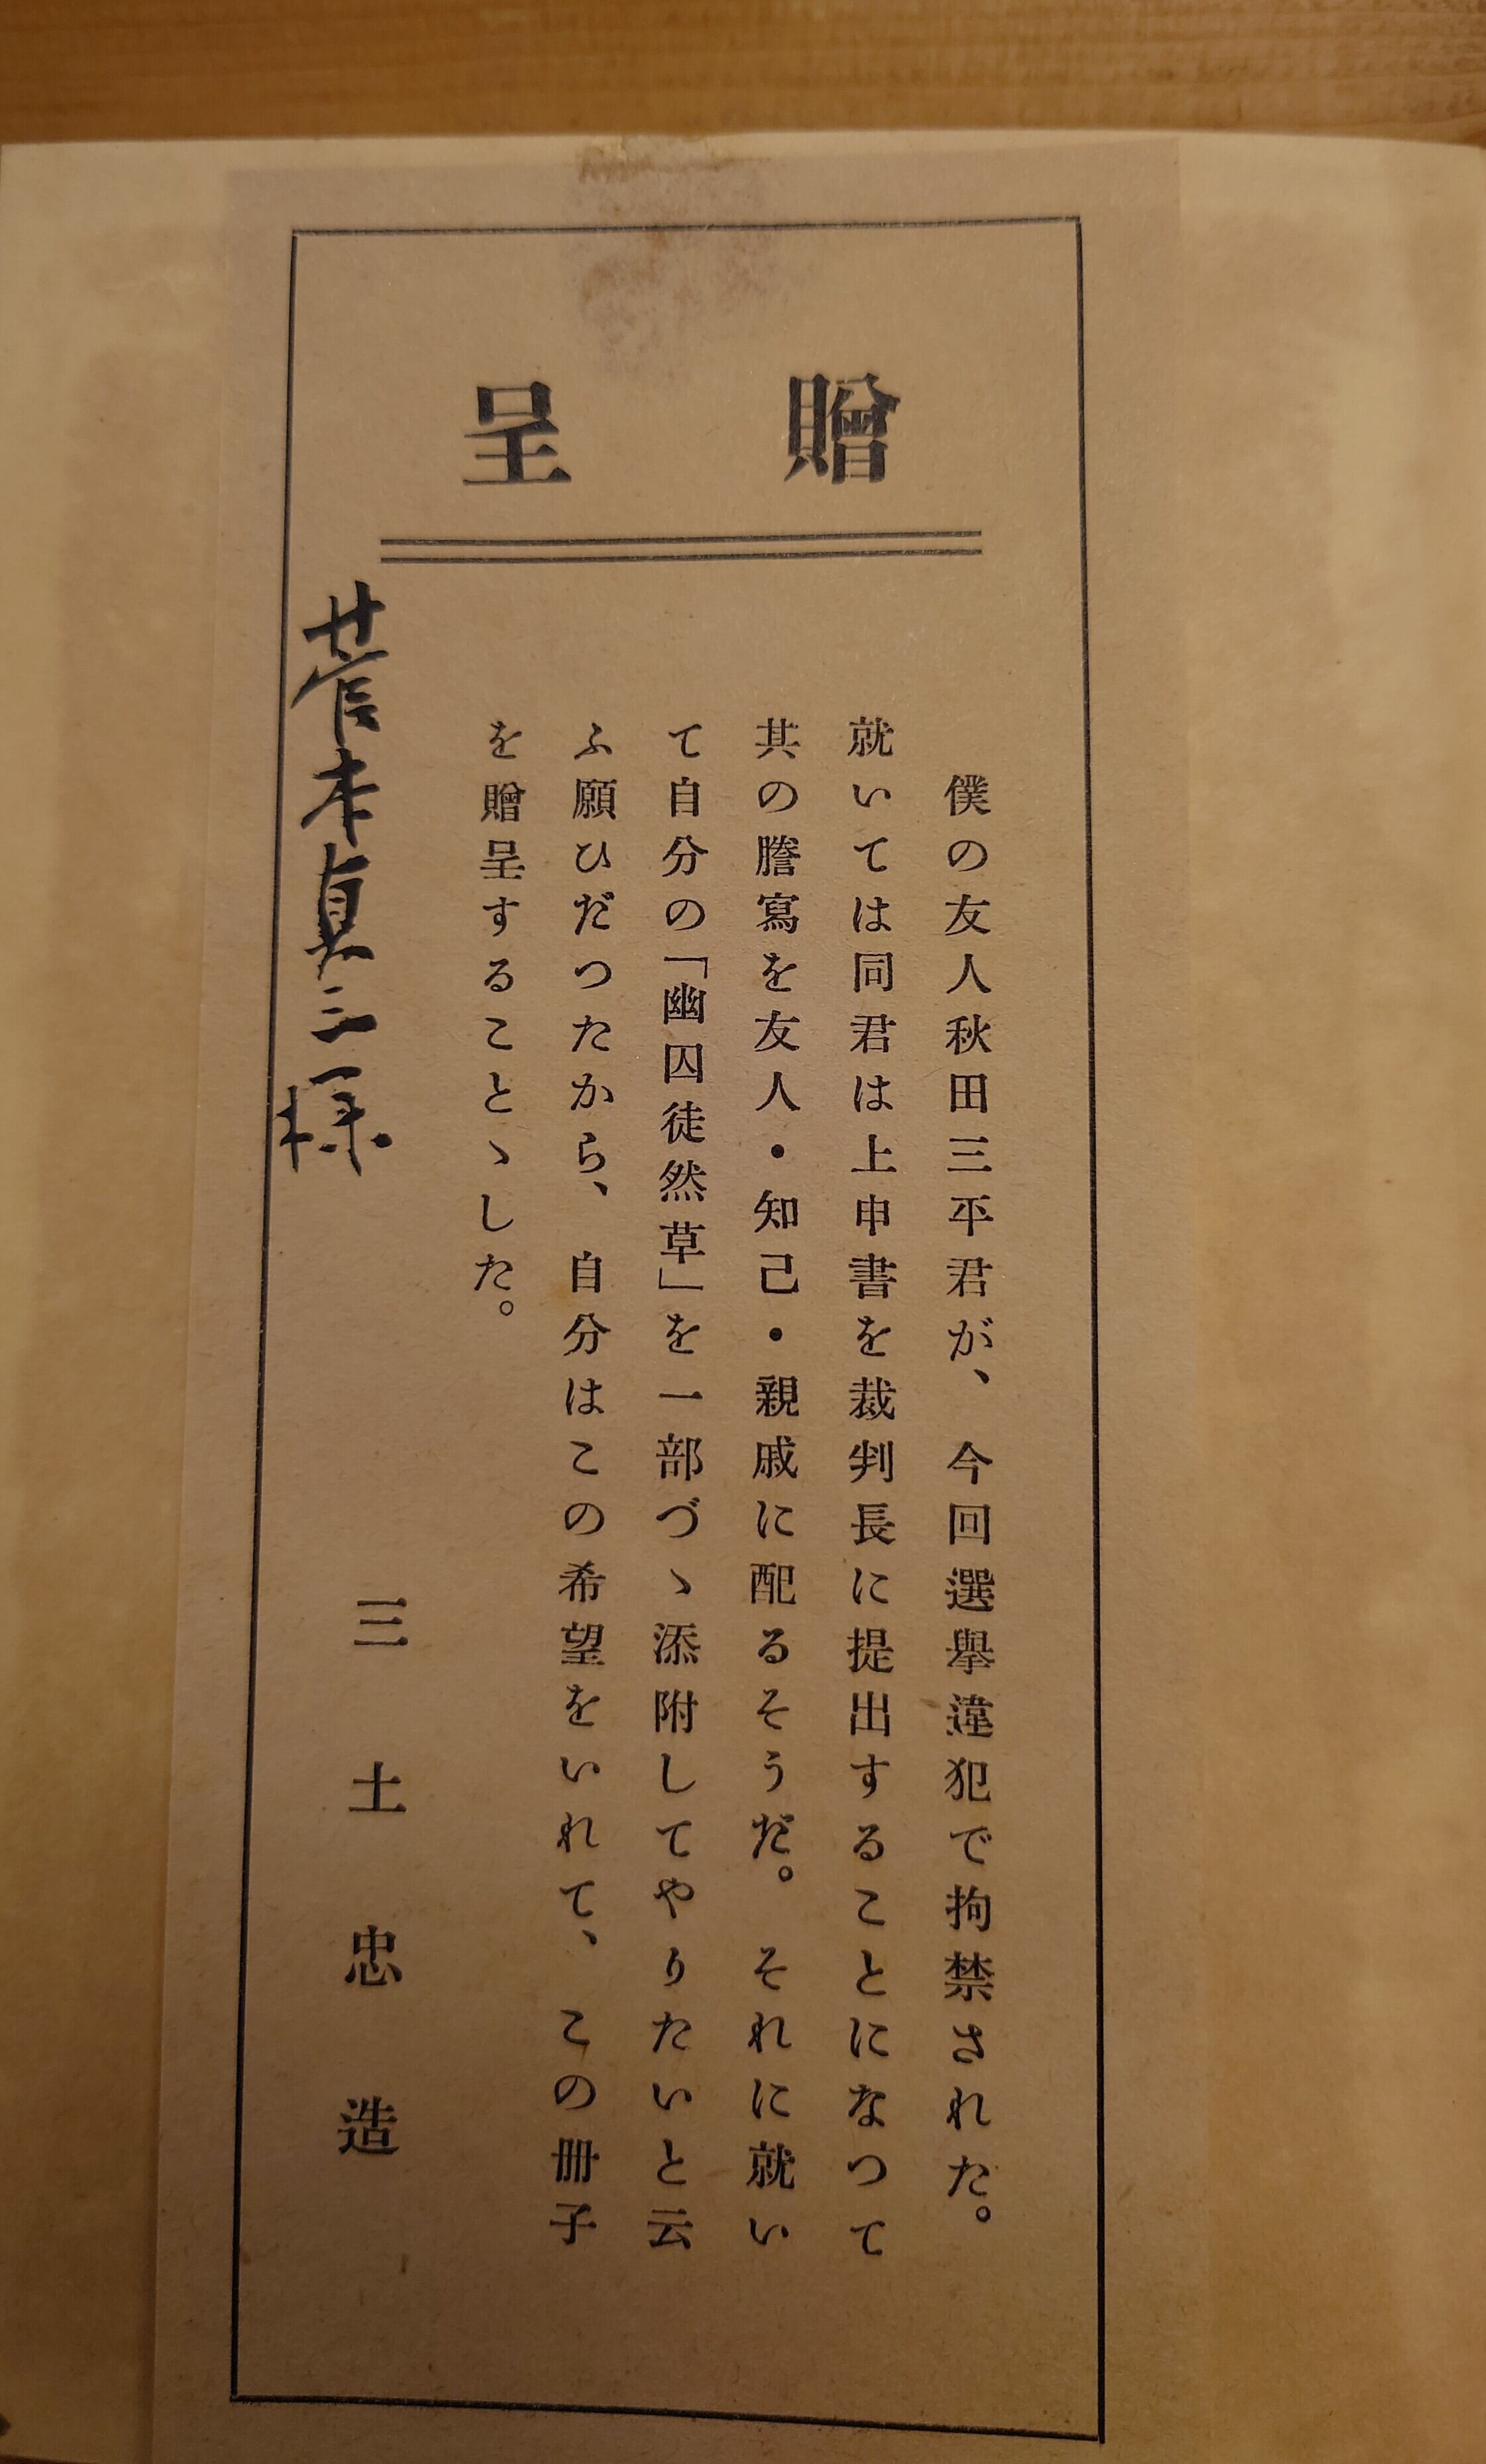 贈呈
僕の友人秋田三平君が、今回選擧違犯で拘禁された。
就いては同君は上申書を裁判長に提出することになつて
其の謄寫を友人・知己・親戚に配るそうだ。それに就い
て自分の「幽囚徒然草」を一部づゝ添附してやりたいと云
ふ願ひだつたから、自分はこの希望をいれて、この冊子
を贈呈することゝした。
三土忠造
菅本貞三様